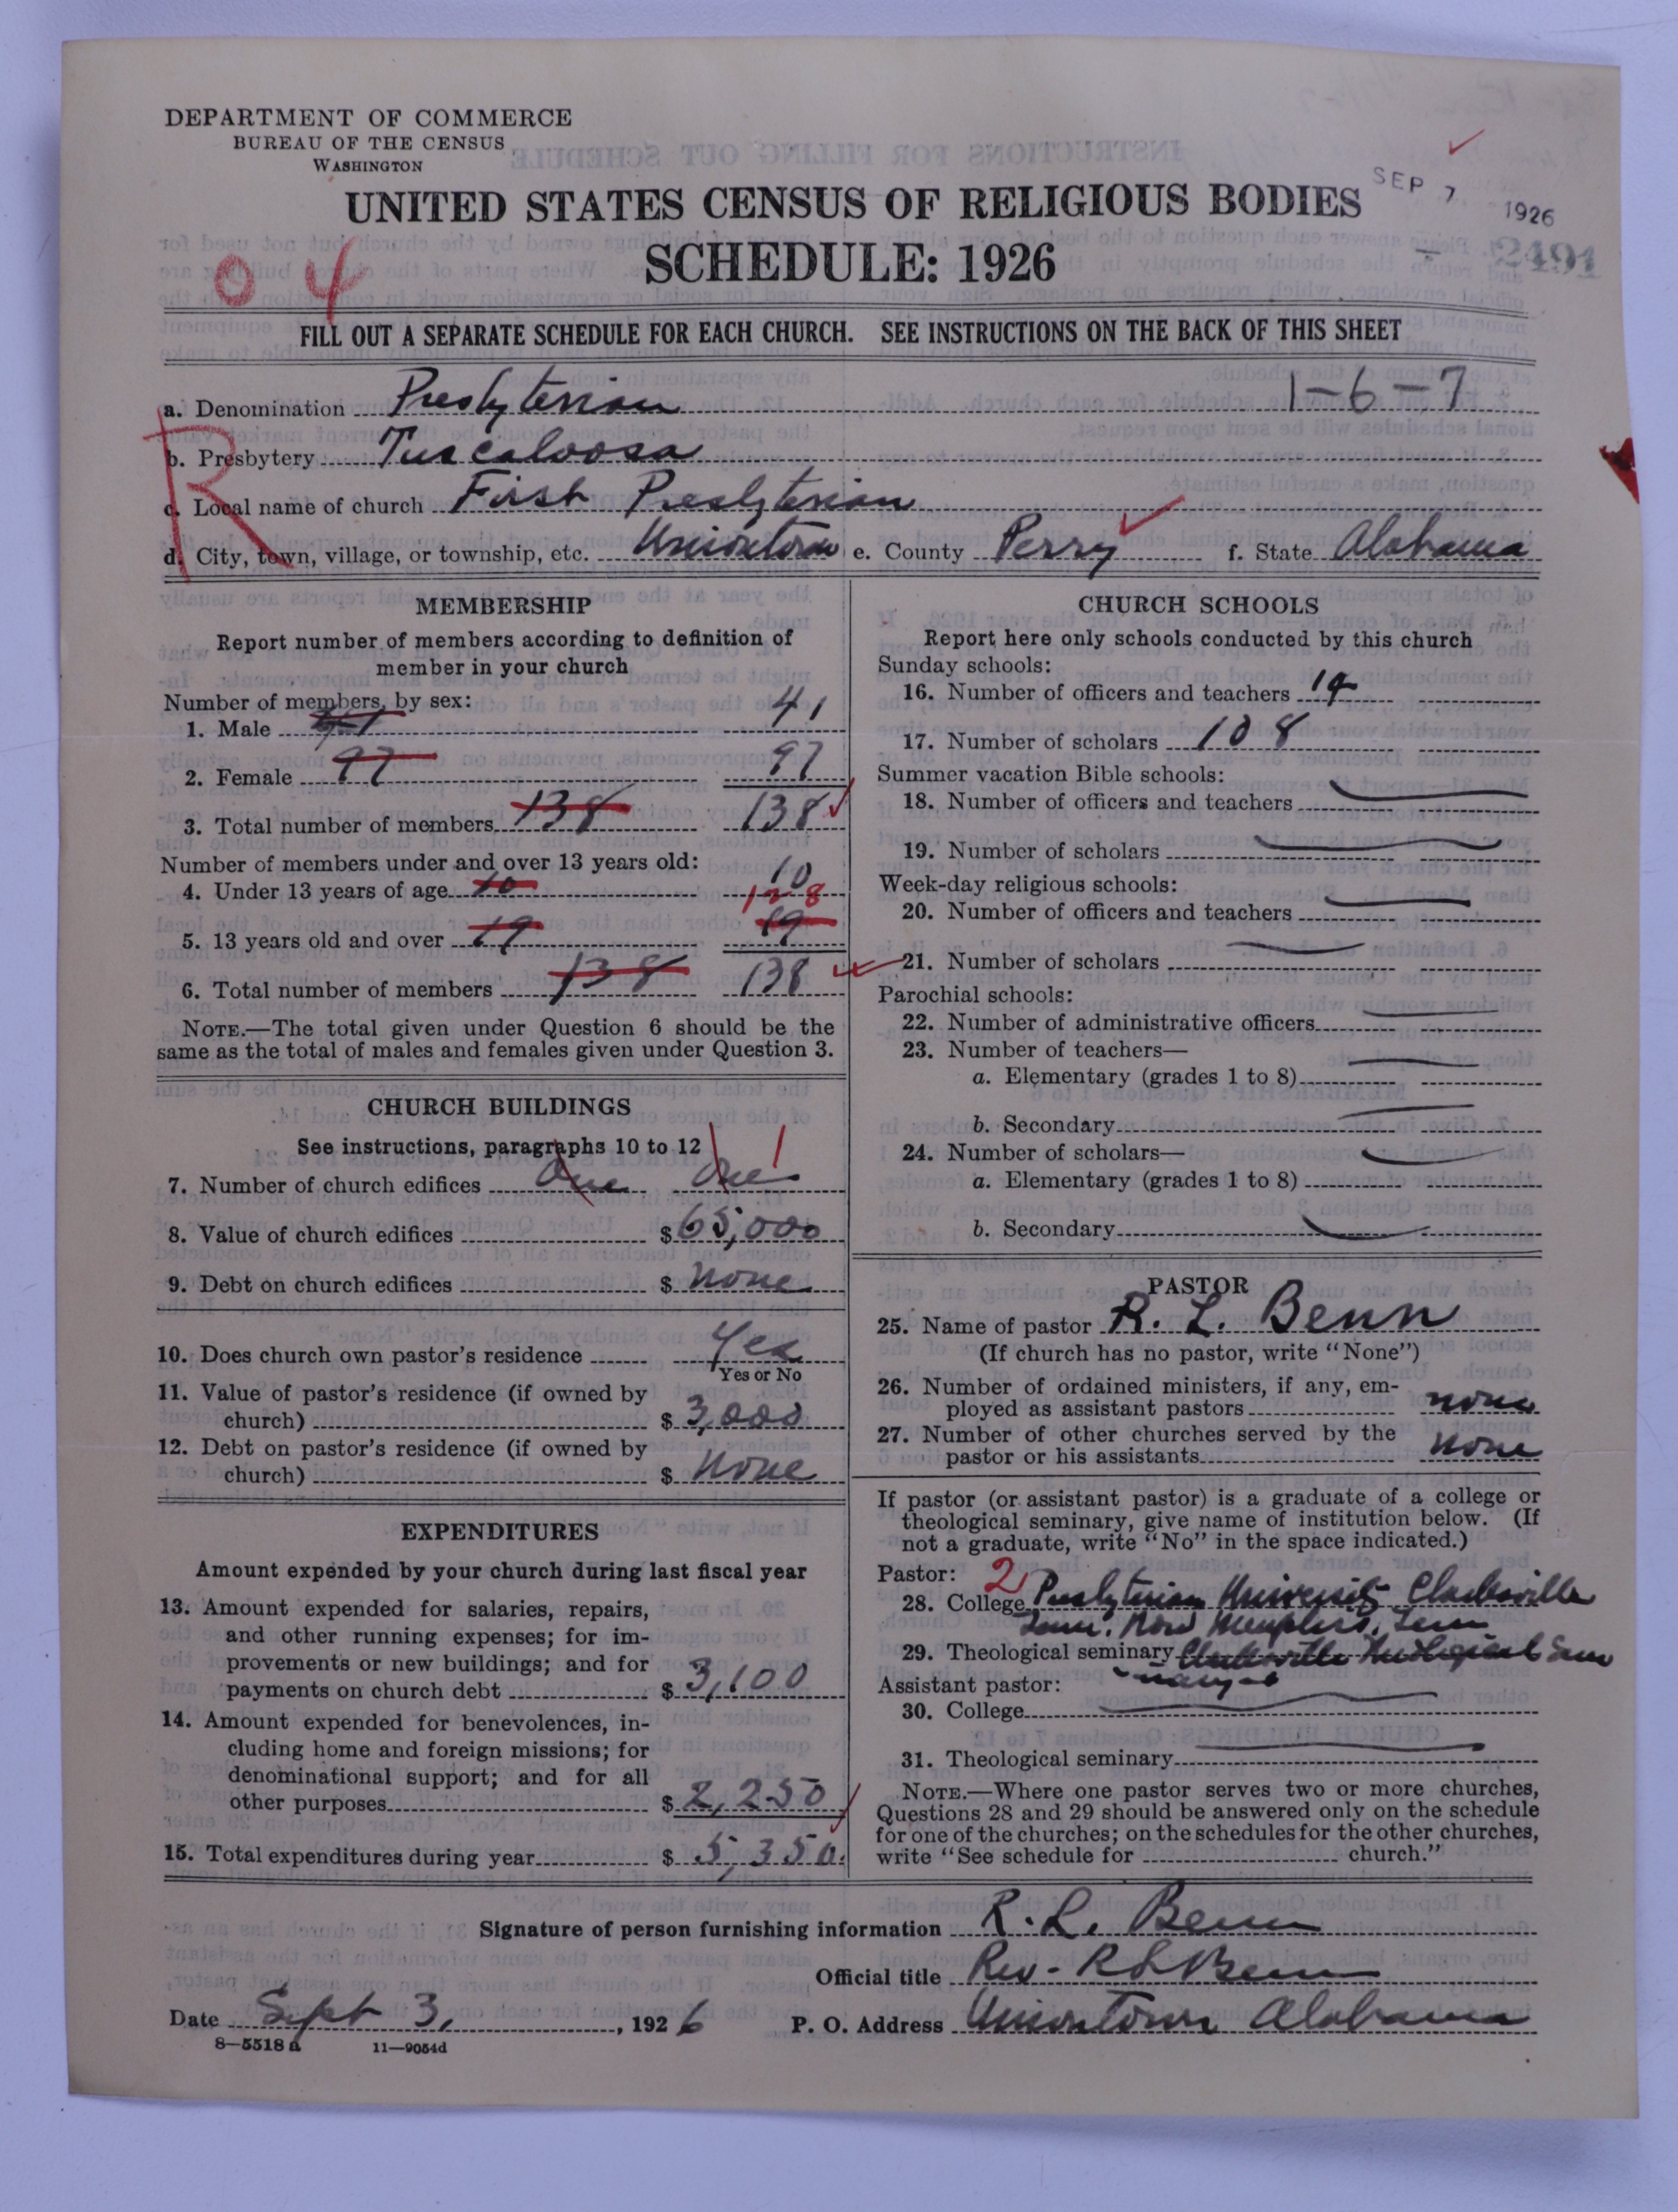 DEPARTMENT OF COMMERCE
BUREAU OF THE CENSUS
WASHINGTON
UNITED STATES CENSUS OF RELIGIOUS BODIES
SEP 7 1926
SCHEDULE: 1926
2491
0 4
FILL OUT A SEPARATE SCHEDULE FOR EACH CHURCH. SEE INSTRUCTIONS ON THE BACK OF THIS SHEET
a. Denomination Presbyterian 1-6-7
R
b. Presbytery Tuscaloosa
c. Local name of church First Presbyterian
d. City, town, village, or township, etc. Uniontown e. County Perry f. State Alabama
MEMBERSHIP
Report number of members according to definition of
member in your church
Number of members, by sex:
1. Male 41 41
2. Female 97 97
3. Total number of members 138 138
Number of members under and over 13 years old:
4. Under 13 years of age 10 10
128
5. 13 years old and over 19 19
6. Total number of members 138 138
NOTE.—The total given under Question 6 should be the
same as the total of males and females given under Question 3.
CHURCH BUILDINGS
See instructions, paragraphs 10 to 12
7. Number of church edifices One One 1
8. Value of church edifices $ 65,000
9. Debt on church edifices $ None
10. Does church own pastor's residence Yes
Yes or No
11. Value of pastor's residence (if owned by
church) $ 3,000
12. Debt on pastor's residence (if owned by
church) $ None
EXPENDITURES
Amount expended by your church during last fiscal year
13. Amount expended for salaries, repairs,
and other running expenses; for im-
provements or new buildings; and for
payments on church debt $ 3,100
14. Amount expended for benevolences, in-
cluding home and foreign missions; for
denominational support; and for all
other purposes $ 2,250
15. Total expenditures during year $ 5,350.
CHURCH SCHOOLS
Report here only schools conducted by this church
Sunday schools:
16. Number of officers and teachers 14
17. Number of scholars 108
Summer vacation Bible schools:
18. Number of officers and teachers
19. Number of scholars
Week-day religious schools:
20. Number of officers and teachers
21. Number of scholars
Parochial schools:
22. Number of administrative officers
23. Number of teachers—
a. Elementary (grades 1 to 8)
b. Secondary
24. Number of scholars—
a. Elementary (grades 1 to 8)
b. Secondary
PASTOR
25. Name of pastor R. L. Benn
(If church has no pastor, write "None")
26. Number of ordained ministers, if any, em-
ployed as assistant pastors none
27. Number of other churches served by the
pastor or his assistants none
If pastor (or assistant pastor) is a graduate of a college or
theological seminary, give name of institution below. (If
not a graduate, write "No" in the space indicated.)
Pastor: 2
28. College Presbyterian University Clarksville
Tenn. Now Memphis, Tenn
29. Theological seminary Clarksville Theological Sem
inary
Assistant pastor:
30. College
31. Theological seminary
NOTE.—Where one pastor serves two or more churches,
Questions 28 and 29 should be answered only on the schedule
for one of the churches; on the schedules for the other churches,
write "See schedule for church."
Signature of person furnishing information R. L. Benn
Official title Rev. R L Benn
Date Sept 3, 1926 P. O. Address Uniontown Alabama
8—5518 a 11—9054d